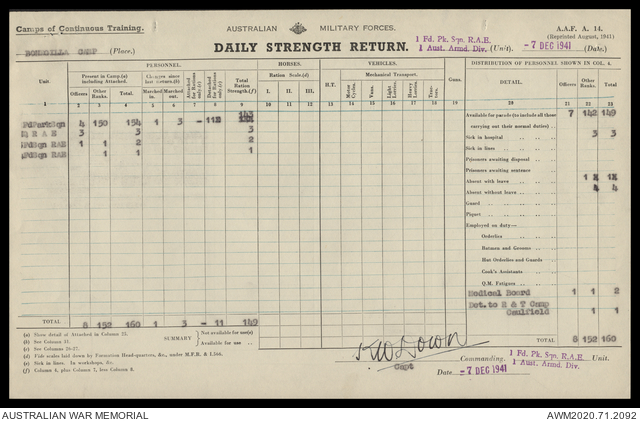 Camps of Continuous Training.
AUSTRALIAN MILITARY FORCES.
A.A.F. A. 14.
(Reprinted August, 1941)
BONEGILLA CAMP (Place.)
DAILY STRENGTH RETURN.
1 Fd. Pk. Sqn. R.A.E.
1 Aust. Armd. Div. (Unit).
-7 DEC 1941 (Date.)
PERSONNEL. HORSES. VEHICLES. DISTRIBUTION OF PERSONNEL SHOWN IN COL. 4.
Unit. Present in Camp.(a) including Attached. Changes since last return.(b) Attached for Rations only.(c) Detached for Rations (c) Total Ration Strength.(f) Ration Scale.(d) H.T. Mechanical Transport. Guns. DETAIL. Officers Other Ranks. Total.
Officers Other Ranks. Total. Marched in. Marched out. I. II. III. I. II. III. Motor Cycles. Vans. Light Lorries. Heavy Lorries. Tractors.
1 2 3 4 5 6 7 8 9 10 11 12 13 14 15 16 17 18 19 20 21 22 23
FdParkSqn 4 150 154 1 3 - 11 143
R A E 3 3 3
Sqn RAE 1 1 2 2
Sqn RAE 1 1 1
Available for parade (to include all those carrying out their normal duties) 7 142 149
Sick in hospital 3 3
Sick in lines
Prisoners awaiting disposal
Prisoners awaiting sentence
Absent with leave 1 1
Absent without leave 4 4
Guard
Piquet
Employed on duty—
Orderlies
Batmen and Grooms
Hut Orderlies and Guards
Cook's Assistants
Q.M. Fatigues
Medical Board 1 1 2
Det. to E & T Camp
Caulfield 1 1
TOTAL 8 152 160 1 3 - 11 149
TOTAL 8 152 160
(a) State detail of Attached in Column 25.
(b) See Column 31.
(c) See Columns 26-27.
(d) Fide scales laid down by Formation Head-quarters, &c., under M.F.R. & I.
(e) Sick in Lines. In workshops, &c.
(f) Column 4, plus Column 7, less Column 8.
SUMMARY
Not available for use(e)
Available for use
Capt
Commanding. 1 Fd. Pk. Sqn. R.A.E. Unit.
1 Aust. Armd. Div.
Date -7 DEC 1941
AUSTRALIAN WAR MEMORIAL
AWM2020.71.2092